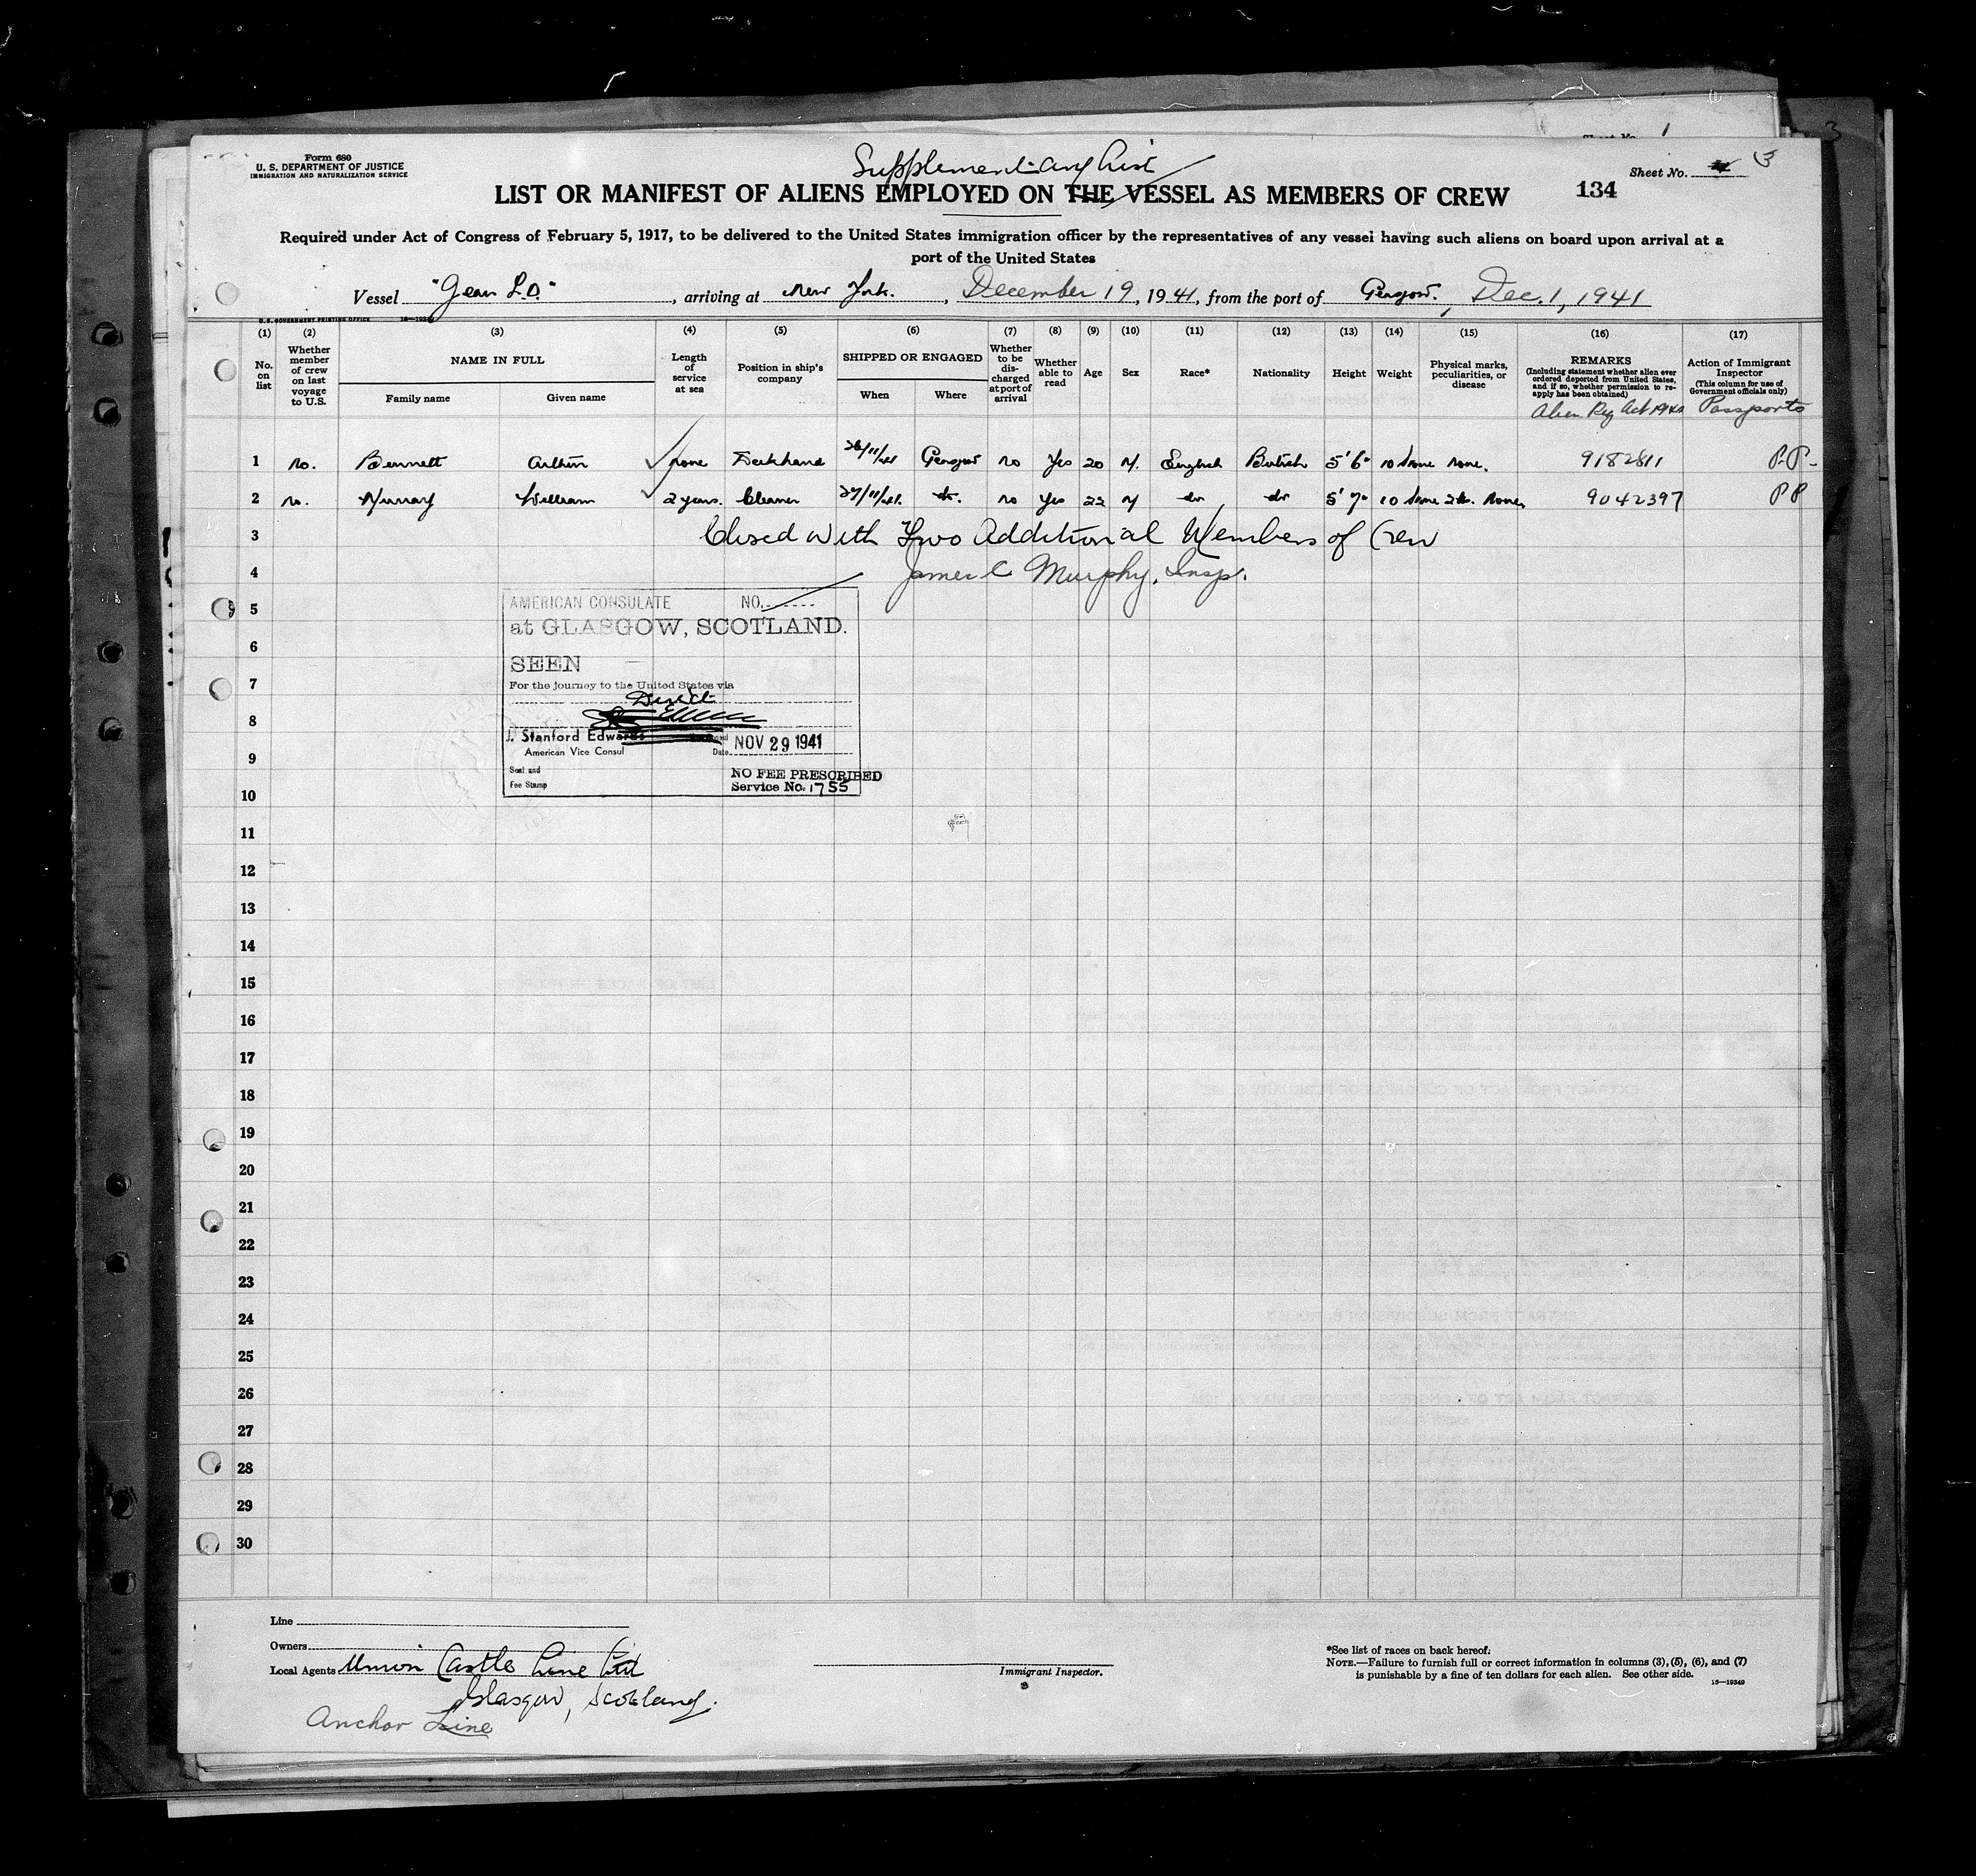 Sheet No. 1
3
Form 680
U. S. DEPARTMENT OF JUSTICE
IMMIGRATION AND NATURALIZATION SERVICE
Supplementary List
Sheet No. 4 3
134
LIST OR MANIFEST OF ALIENS EMPLOYED ON THE VESSEL AS MEMBERS OF CREW
Required under Act of Congress of February 5, 1917, to be delivered to the United States immigration officer by the representatives of any vessel having such aliens on board upon arrival at a
port of the United States
Vessel "Jean L.D.", arriving at New York., December 19, 1941, from the port of Glasgow. Dec. 1, 1941
U. S. GOVERNMENT PRINTING OFFICE 16—19349
(1) (2) (3) (4) (5) (6) (7) (8) (9) (10) (11) (12) (13) (14) (15) (16) (17)
No. on list
Whether member of crew on last voyage to U.S.
NAME IN FULL
Family name Given name
Length of service at sea
Position in ship's company
SHIPPED OR ENGAGED
When Where
Whether to be discharged at port of arrival
Whether able to read
Age
Sex
Race*
Nationality
Height
Weight
Physical marks, peculiarities, or disease
REMARKS
(Including statement whether alien ever ordered deported from United States, and if so, whether permission to reapply has been obtained)
Alien Reg Act 1940
Action of Immigrant Inspector
(This column for use of Government officials only)
Passports
1 no. Bennett Arthur none Deckhand 26/11/41 Glasgow no Yes 20 M. English British 5'6" 10 Stone None. 9182811 P.P.
2 no. Murray William 2 years. Cleaner 27/11/41. do. no Yes 22 M do do 5'7" 10 Stone 2lb. None. 9042397 PP
3 Closed with Two Additional Members of Crew
4 James C Murphy, Insp.
5
6
7
8
9
10
11
12
13
14
15
16
17
18
19
20
21
22
23
24
25
26
27
28
29
30
AMERICAN CONSULATE NO.
at GLASGOW, SCOTLAND.
SEEN
For the journey to the United States via
Direct
J. Stanford Edwards
American Vice Consul
Date NOV 29 1941
Seal and
Fee Stamp
NO FEE PRESCRIBED
Service No. 1755
Line
Owners
Local Agents Union Castle Line Ltd
Glasgow, Scotland.
Anchor Line
Immigrant Inspector.
*See list of races on back hereof.
NOTE.—Failure to furnish full or correct information in columns (3), (5), (6), and (7)
is punishable by a fine of ten dollars for each alien. See other side.
16—19349